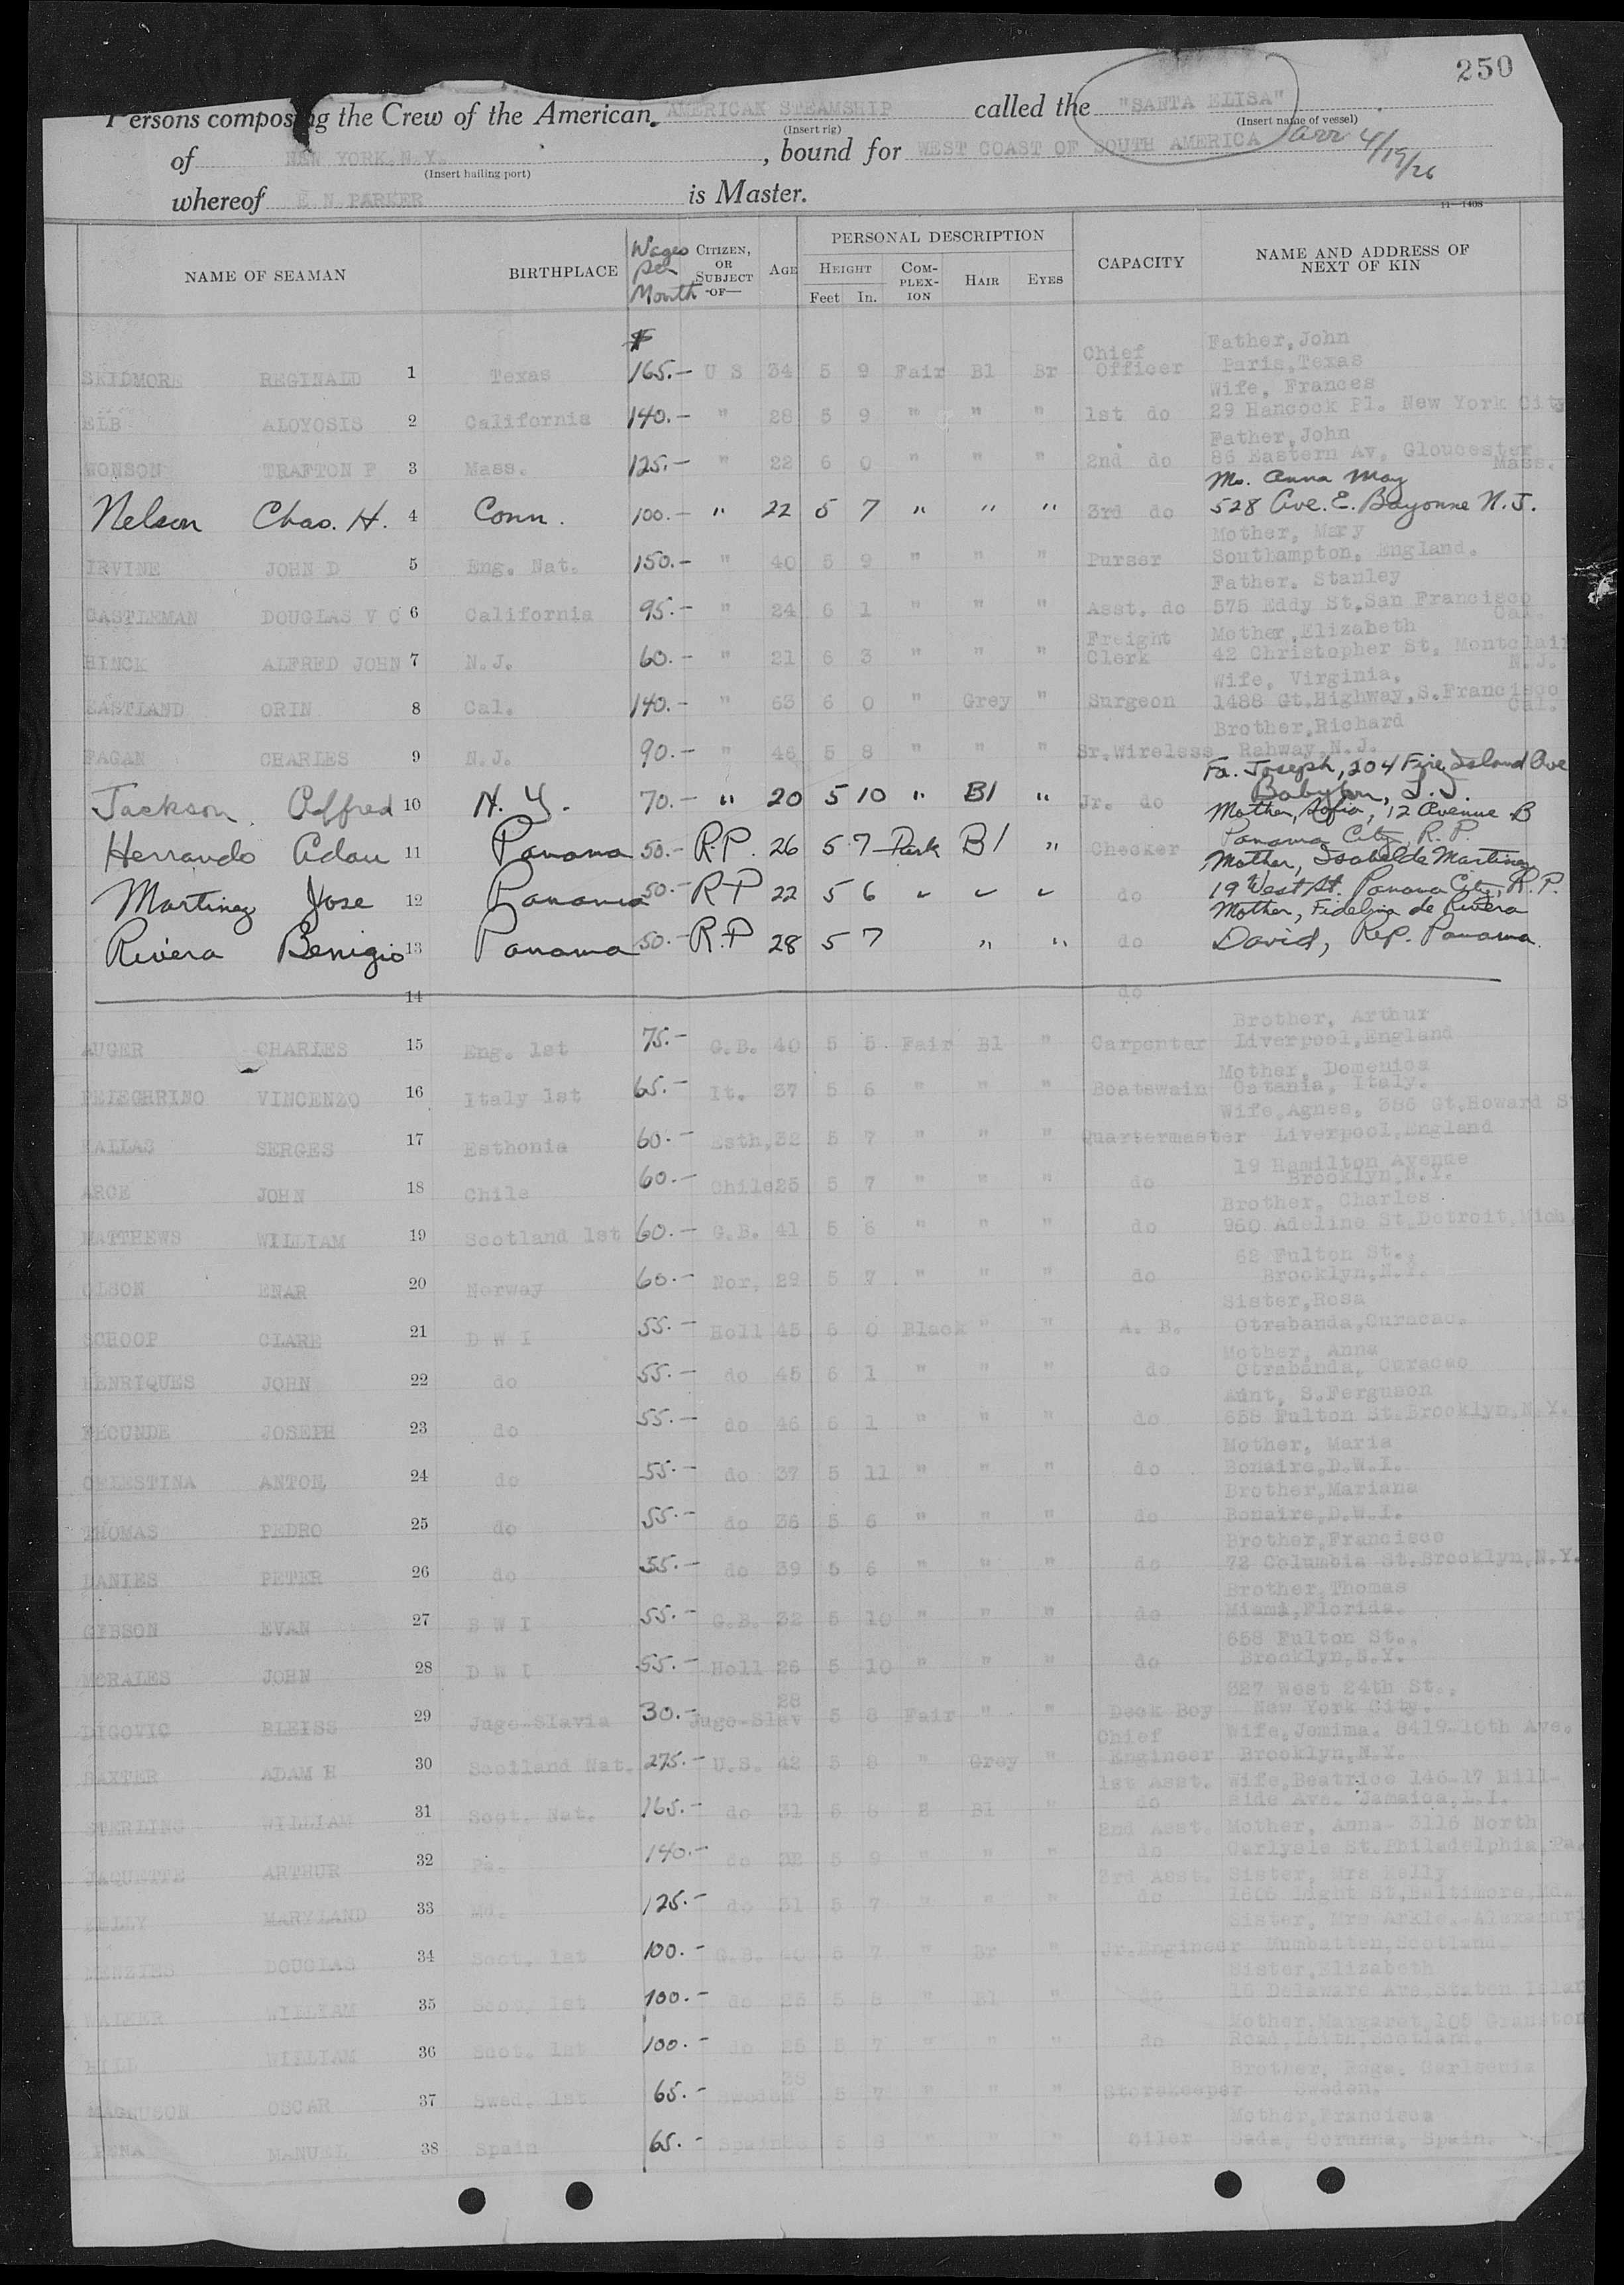 250
Persons composing the Crew of the American AMERICAN STEAMSHIP called the "SANTA ELISA"
(Insert rig) (Insert name of vessel)
of NEW YORK,N.Y. , bound for WEST COAST OF SOUTH AMERICA arr 4/19/26
(Insert hailing port)
whereof E N PARKER is Master.
11—1408
NAME OF SEAMAN BIRTHPLACE Wages per Month CITIZEN, OR SUBJECT OF— AGE PERSONAL DESCRIPTION HEIGHT Feet In. COMPLEXION HAIR EYES CAPACITY NAME AND ADDRESS OF NEXT OF KIN
$
Father,John
SKIDMORE REGINALD 1 Texas 165.— U S 34 5 9 Fair Bl Br Chief Officer Paris,Texas
Wife, Frances
ELB ALOYOSIS 2 California 140.— " 28 5 9 " " " 1st do 29 Hancock Pl. New York City
Father,John
WONSON TRAFTON F 3 Mass. 125.— " 22 6 0 " " " 2nd do 86 Eastern Av, Gloucester Mass.
Mo. Anna May
Nelson Chas. H. 4 Conn. 100.— " 22 5 7 " " " 3rd do 528 Ave. E. Bayonne N.J.
Mother, Mary
IRVINE JOHN D 5 Eng. Nat. 150.— " 40 5 9 " " " Purser Southampton, England.
Father. Stanley
CASTLEMAN DOUGLAS V C 6 California 95.— " 24 6 1 " " " Asst. do 575 Eddy St,San Francisco Cal.
Mother,Elizabeth
HINCK ALFRED JOHN 7 N.J. 60.— " 21 6 3 " " " Freight Clerk 42 Christopher St, Montclair N.J.
Wife, Virginia,
EASTLAND ORIN 8 Cal. 140.— " 63 6 0 " Grey " Surgeon 1488 Gt.Highway,S.Francisco Cal.
Brother,Richard
FAGAN CHARLES 9 N.J. 90.— " 46 5 8 " " " Sr.Wireless Rahway,N.J.
Fa. Joseph, 204 Fire Island Ave
Jackson Alfred 10 N. Y. 70.— " 20 5 10 " Bl " Jr. do Babylon,
Mother, Sofia, 12 Avenue B
Herrando Adan 11 Panama 50.— R.P. 26 5 7 Dark Bl " Checker Panama City, R.P.
Mother, Isabel de Martinez
Martinez Jose 12 Panama 50.— R P 22 5 6 " " " do 19 West St. Panama City, R.P.
Mother, Fidelina de Rivera
Rivera Benigio 13 Panama 50.— R.P 28 5 7 " " do David, Rep. Panama
14 do
Brother, Arthur
AUGER CHARLES 15 Eng. 1st 75.— G.B. 40 5 5 Fair Bl " Carpenter Liverpool,England
Mother, Domenica
PELEGHRINO VINCENZO 16 Italy 1st 65.— It. 37 5 6 " " " Boatswain Catania, Italy.
Wife,Agnes, 386 Gt.Howard S
KALLAS SERGES 17 Esthonia 60.— Esth, 32 5 7 " " " Quartermaster Liverpool,England
19 Hamilton Avenue
ARCE JOHN 18 Chile 60.— Chile 25 5 7 " " " do Brooklyn,N.Y.
Brother, Charles
MATTHEWS WILLIAM 19 Scotland 1st 60.— G.B. 41 5 6 " " " do 960 Adeline St,Detroit,Mich
68 Fulton St.,
OLSON ENAR 20 Norway 60.— Nor. 29 5 7 " " " do Brooklyn,N.Y.
Sister,Rosa
SCHOOP CLARE 21 D W I 55.— Holl 45 6 0 Black " " A. B. Otrabanda,Curacao.
Mother, Anna
HENRIQUES JOHN 22 do 55.— do 45 6 1 " " " do Otrabanda, Curacao
Aunt, S.Ferguson
FECUNDE JOSEPH 23 do 55.— do 46 6 1 " " " do 658 Fulton St.Brooklyn,N.Y.
Mother, Maria
CELESTINA ANTON, 24 do 55.— do 37 5 11 " " " do Bonaire,D.W.I.
Brother,Mariana
THOMAS PEDRO 25 do 55.— do 36 5 6 " " " do Bonaire,D.W.I.
Brother,Francisco
LANIES PETER 26 do 55.— do 39 5 6 " " " do 72 Columbia St.Brooklyn,N.Y.
Brother,Thomas
GIBSON EVAN 27 B W I 55.— G.B. 32 5 10 " " " do Miami,Florida.
658 Fulton St.,
MORALES JOHN 28 D W I 55.— Holl 26 5 10 " " " do Brooklyn,N.Y.
327 West 24th St.,
LIGOVIC BLEISS 29 Jugo-Slavia 30.— Jugo-Slav 28 5 8 Fair " " Deck Boy New York City.
Wife,Jemima. 8419-10th Ave.
BAXTER ADAM H 30 Scotland Nat. 275.— U.S. 42 5 8 " Grey " Chief Engineer Brooklyn,N.Y.
Wife,Beatrice 146-17 Hill-
STERLING WILLIAM 31 Scot. Nat. 165.— do 31 Bl " 1st Asst. do side Ave. Jamaica,L.I.
Mother, Anna- 3116 North
JAQUETTE ARTHUR 32 Pa. 140.— do 5 9 " " " 2nd Asst. do Carlysle St.Philadelphia,Pa.
Sister, Mrs Kelly
MARYLAND 33 Md. 125.— do 31 5 7 " " " 3rd Asst. do Baltimore,Md.
Sister, Mrs Arkle.
MENZIES DOUGLAS 34 Scot. 1st 100.— G.B. 40 5 7 " Br " Jr.Engineer Scotland.
Sister,Elizabeth
WALKER WILLIAM 35 Scot. 1st 100.— do 5 8 " Bl " do 16 Delaware Ave,Staten Islan
Mother,Margaret,105
HILL WILLIAM 36 Scot. 1st 100.— do 25 5 7 " " " do Road,Leith,Scotland.
Brother,
MAGNUSON OSCAR 37 Swed. 1st 65.— Sweden 5 7 " " " Storekeeper Sweden,
Mother,Francisca
PENA MANUEL 38 Spain 65.— Spain 5 8 " " " Oiler Sada, Corunna, Spain.